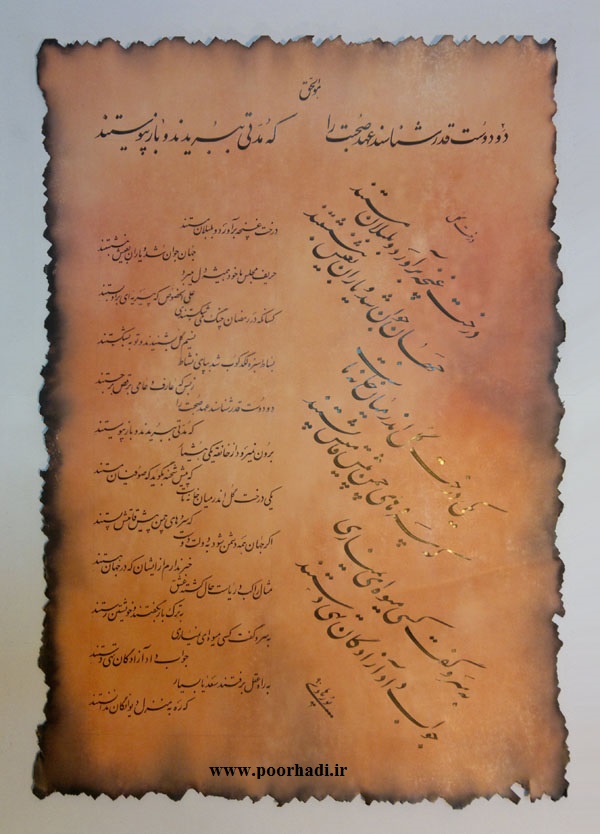 هوالحق
دو دوست قدر شناسند عهد صحبت را که مدتی ببریدند و باز پیوستند
درخت گل
درخت غنچه برآورد و بلبلان مستند
جهان جوان شد و یاران بعیش بنشستند
یکی درخت گل اندر میان خانه ماست
که سروهای چمن پیش قامتش پستند
به سرو گفت کسی میوه ای نمیاری
جواب داد آزادگان تهی دستند
پورهادی
درخت غنچه برآورد و بلبلان مستند
جهان جوان شد و یاران بعیش بنشستند
حریف مجلس ما خود همیشه دل میبرد
علی الخصوص که پیرایه ای برو بستند
کسانکه در رمضان چنگ میشکستندی
نسیم گل بشنیدند و توبه بشکستند
بساط سبزه لگدکوب شد بپای نشاط
ز بسکه عارف و عامی برقص برجستند
دو دوست قدر شناسند عهد صحبت را
که مدتی ببریدند و باز پیوستند
برون نمیرود از خانقه یکی هشیار
که پیش شحنه بگوید که صوفیان مستند
یکی درخت گل اندر میان خانه ماست
که سروهای چمن پیش قامتش پستند
اگر جهان همه دشمن شود به دولت دوست
خبر ندارم از ایشان که در جهان هستند
مثال راکب دریاست حال کشته عشق
به ترک بار بگفتند و خویشتن رستند
به سرو گفت کسی میوه ای نمیاری
جواب داد آزادگان تهی دستند
به راه عقل برفتند سعدیا بسیار
که ره به منزل دیوانگان ندانستند
www.poorhadi.ir